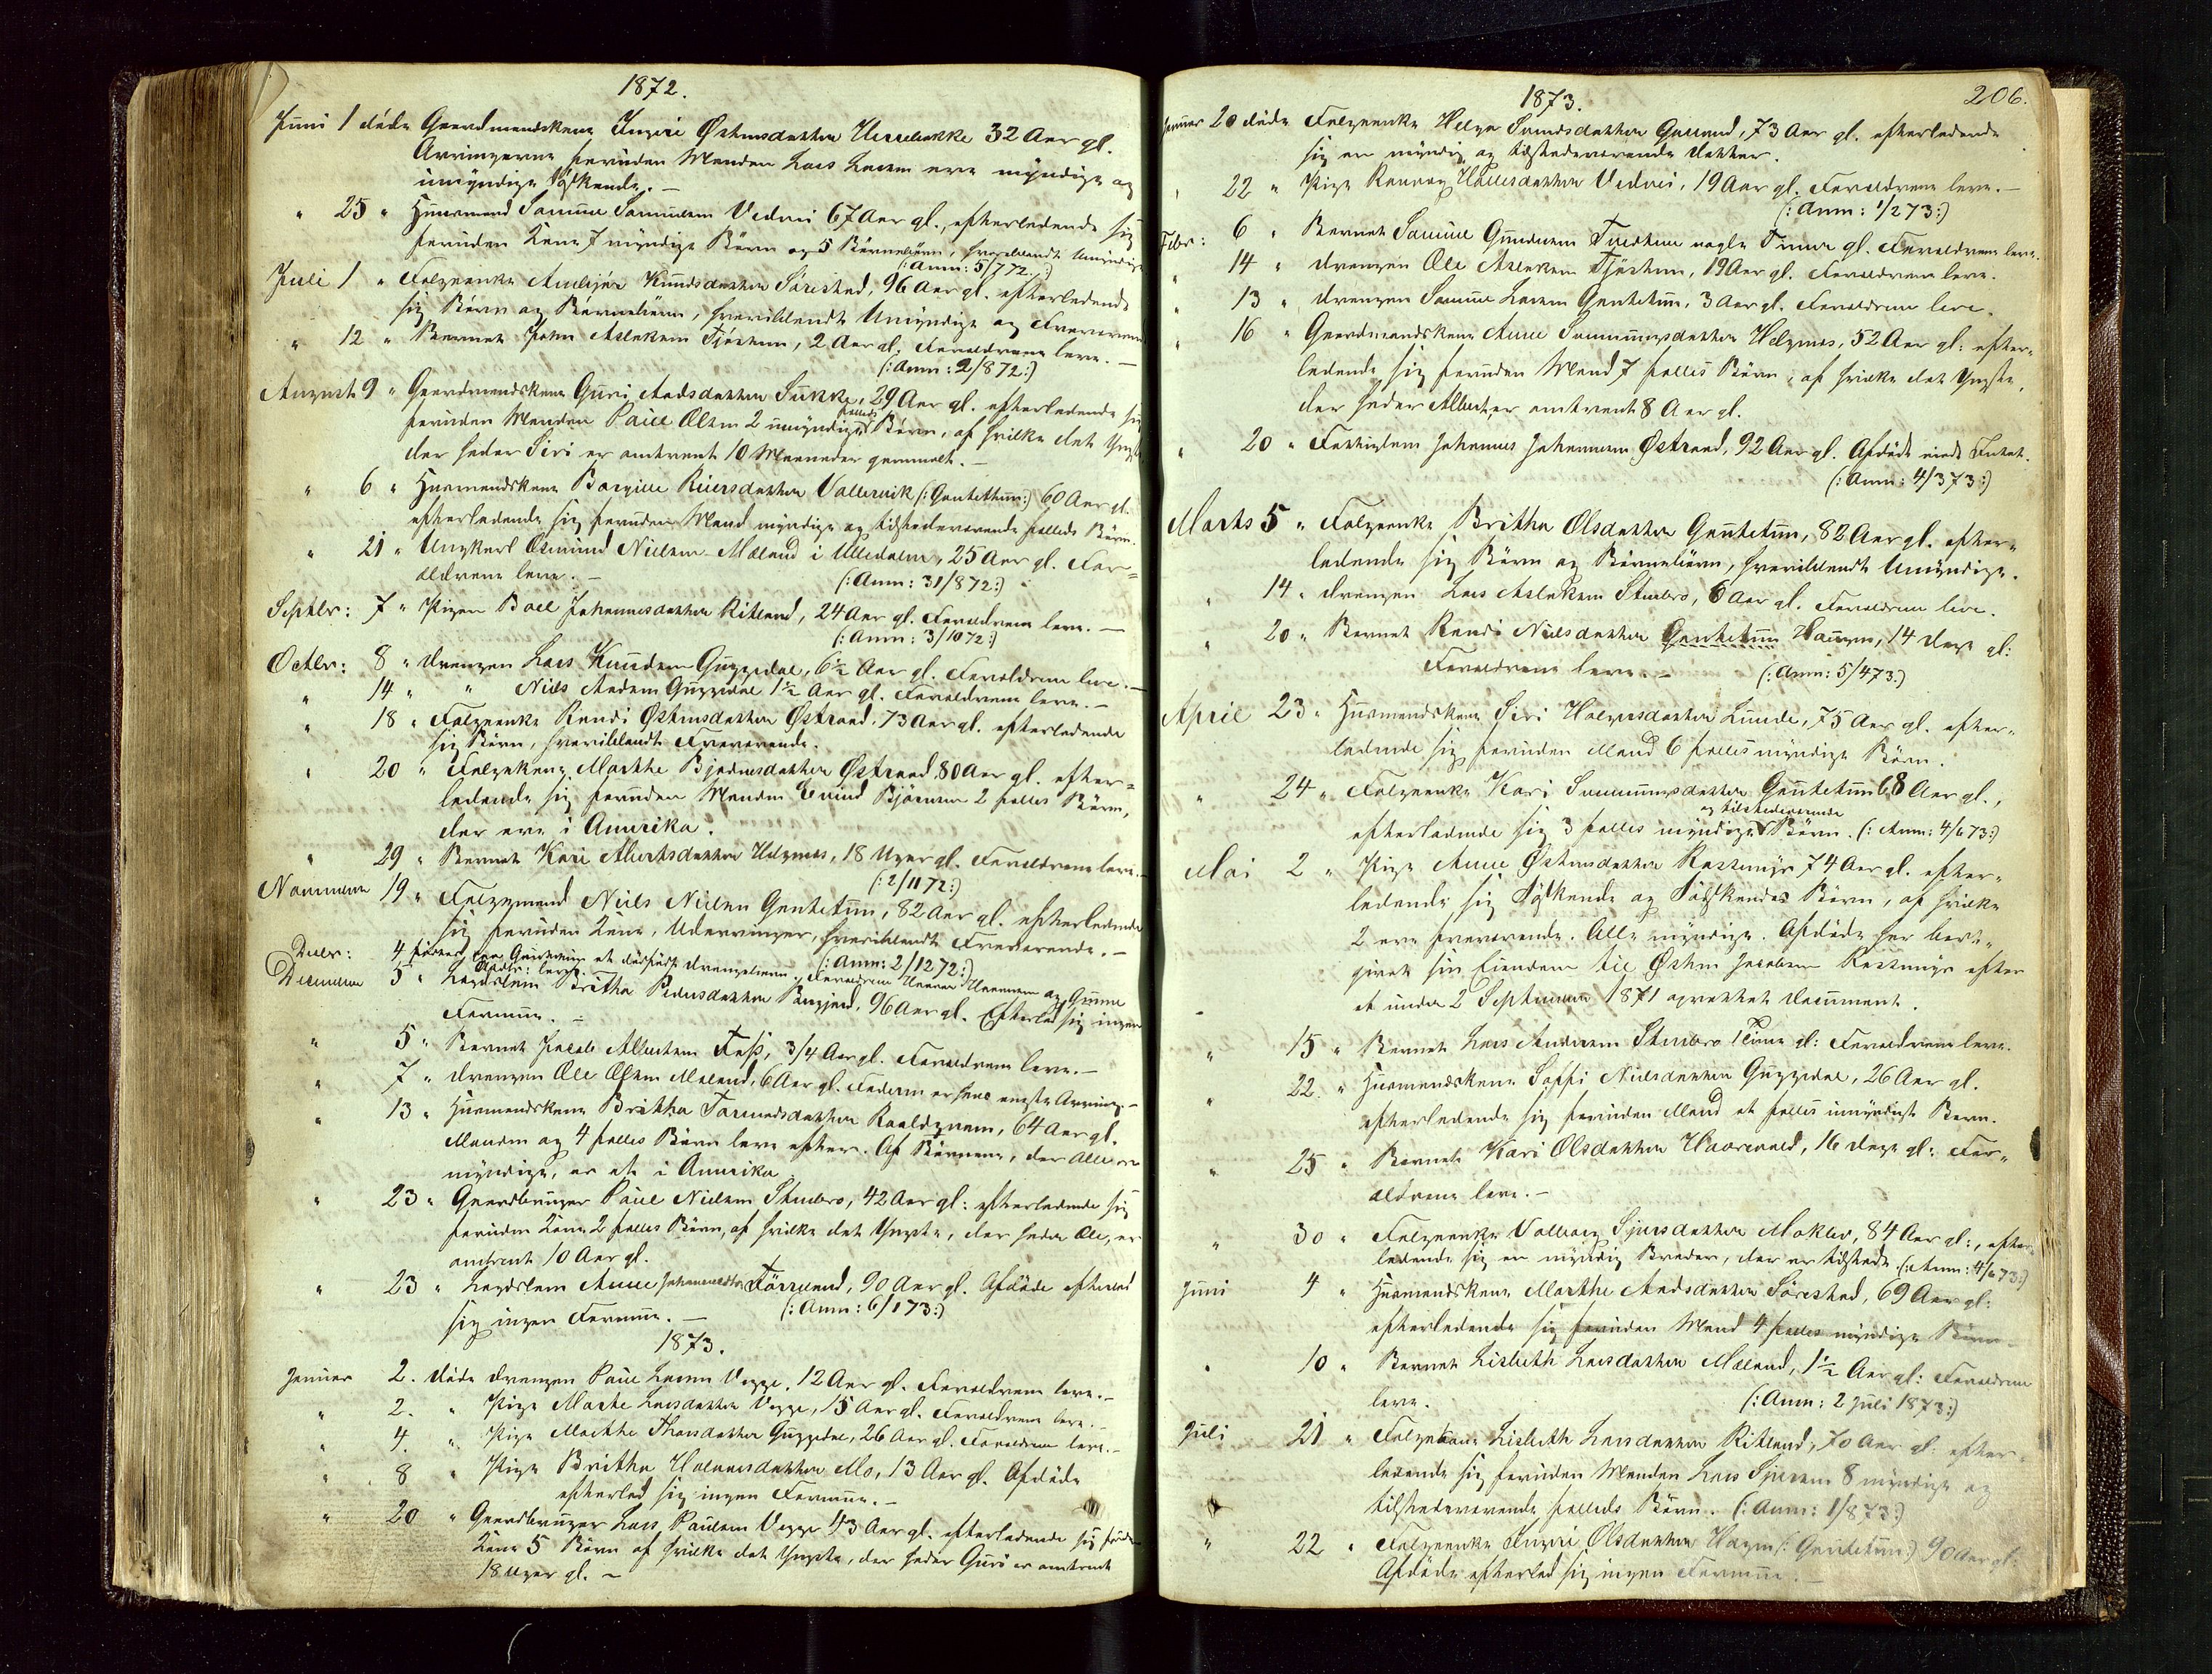 1872.
Juni 1 døde Gaardmandskone Ingeri Østensdatter 32 Aar gl.
Arvingerne foruden Manden Lars Larsen ere myndige og
umyndige Sødskende. —
" 25 " Huusmand Samuel Samuelsen Vedvii 67 Aar gl., efterladende sig
foruden Kone 7 myndige Børn og 5 Børnebørn, hveriblandt Umyndige
(: Anm: 5/7 72 :)
Juli 1 " Følgeenke Knudsdatter Sørestad, 96 Aar gl. efterladende
sig Børn og Børnebørn, hveriblandt Umyndige og Fraværende
" 12 " Barnet John Aslaksen Tjøstem, 2 Aar gl. Forældrene leve. —
(: Anm: 2/8 72 :)
August 9 " Gaardmandskone Guri Aadsdatter Sukke, 29 Aar gl. efterladende sig
foruden Manden Paul Olsen 2 umyndige fælleds Børn, af hvilke det Yngste
der heder Siri er omtrent 10 Maaneder gammelt. —
" 6 " Huusmandskone Bargille Riersdatter Vallervik (: Gautetun :) 60 Aar gl.
efterladende sig foruden Mand myndige og tilstedeværende fælleds Børn.
" 21 " Ungkarl Osmund Nielsen Mæland i Ulledalen, 25 Aar gl. For=
ældrene leve. — (: Anm: 31/8 72 :)
Septbr: 7 " Pigen Boel Johannesdatter Ritland, 24 Aar gl. Forældrene leve. —
(: Anm: 3/10 72 :)
Octbr: 8 " Drengen Lars Knudsen Guggedal, 6½ Aar gl. Forældrene leve. —
" 14 " " Niels Aadsen Guggedal 1½ Aar gl. Forældrene leve. —
" 18 " Følgeenke Randi Østensdatter Østraad, 73 Aar gl. efterladende
sig Børn, hveriblandt Fraværende.
" 20 " Følgekone Marthe Bjødnesdatter Østraad, 80 Aar gl. efter=
ladende sig foruden Manden Eivind Bjørnsen 2 fælles Børn,
der ere i Amerika.
" 29 " Barnet Kari Albertsdatter Helgenæs, 18 Uger gl. Forældrene leve. —
(: 2/11 72 :)
November 19 " Følgemand Niels Nielsen Gautetun, 82 Aar gl. efterladende
sig foruden Kone, Udarvinger, hveriblandt Fraværende. —
(: Anm: 2/12 72 :)
Decbr: 4 fødtes paa Gautetun et dødfødt Drengebarn. Forældrene og Gunne
leve.
December 5 " Lægdslem Britha Pedersdatter Bergjord, 96 Aar gl. Efterlod sig ingen
Formue. —
" 5 " Barnet Jacob Albertsen Foss, 3/4 Aar gl. Forældrene leve. —
" 7 " Drengen Ole Olsen Mæland, 6 Aar gl. Faderen er hans eneste Arving. —
" 13 " Huusmandskone Britha Tormodsdatter Roaldqvam, 64 Aar gl.
Manden og 4 fælles Børn leve efter. Af Børnene, der alle ere
myndige, er et i Amerika.
" 23 " Gaardbruger Paul Nielsen Stuebro, 42 Aar gl: efterladende sig
foruden Kone 2 fælles Børn, af hvilke det Yngste, der heder Ole, er
omtrent 10 Aar gl.
" 23 " Lægdslem Anne Johannesdtr Førreland, 90 Aar gl. Afdøde efterlod
sig ingen Formue. — (: Anm: 6/1 73 :)
1873.
Januar 2. døde Drengen Paul Larsen Vegge, 12 Aar gl. Forældrene leve. —
" 2. " Pige Marthe Larsdatter Vegge, 15 Aar gl. Forældrene leve. —
" 4. " Pige Marthe Thorsdatter Guggedal, 26 Aar gl. Forældrene leve. —
" 8 " Pige Britha Halvorsdatter Mo, 13 Aar gl. Afdøde
efterlod sig ingen Formue. —
" 20 " Gaardbruger Lars Paulsen Vegge 43 Aar gl. efterladende sig foruden
Kone 5 Børn af hvilke det Yngste, der heder Guri er omtrent
18 Uger gl. —
206.
1873.
Januar 20 døde Følgeenke Helga Samsdatter Gulland, 73 Aar gl. efterladende
sig en myndig og tilstedeværende Datter.
" 22 " Pige Ranvog Hallesdatter Vedvii, 19 Aar gl. Forældrene leve. —
(: Anm: 1/2 73 :)
Febr: 6 " Barnet Samuel Gundersen nogle Timer gl. Forældrene leve.
" 14 " Drengen Ole Aslaksen Tjøstem, 19 Aar gl. Forældrene leve.
" 13 " Drengen Samuel Larsen Gautetun, 3 Aar gl. Forældrene leve.
" 16 " Gaardmandskone Anne Sammungsdatter Helgenæs, 52 Aar gl: efter=
ladende sig foruden Mand 7 fælles Børn, af hvilke det Yngste,
der heder Albert, er omtrent 8 Aar gl.
" 20 " Fattiglem Johannes Johannesen Østraad, 92 Aar gl. Afdøde eiede Intet.
(: Anm: 4/3 73 :)
Marts 5 " Følgeenke Britha Olsdatter Gautetun, 82 Aar gl. efter=
ladende sig Børn og Børnebørn, hveriblandt Umyndige.
" 14 " Drengen Lars Aslaksen Stuebro, 6 Aar gl. Forældrene leve.
" 20 " Barnet Randi Nielsdatter Gautetun Haugen, 14 Dage gl:
Forældrene leve. — (: Anm: 5/4 73 :)
April 23 " Huusmandskone Siri Halvorsdatter Lunde, 75 Aar gl. efter=
ladende sig foruden Mand 6 fælles myndige Børn.
" 24 " Følgeenke Kari Sammungsdatter Gautetun 68 Aar gl.,
efterladende sig 3 fælles myndige og tilstedeværende Børn. (: Anm: 4/6 73 :)
Mai 2 " Pige Anne Østensdatter Rastemyr 74 Aar gl. efter=
ladende sig Sødskende og Sødskendes Børn, af hvilke
2 ere fraværende. Alle myndige. Afdøde har bort=
givet sin Eiendom til Østen Jacobsen Rastemyr efter
et under 2 September 1871 oprettet Document.
" 15 " Barnet Lars Andersen Stuebro 1 Time gl: Forældrene leve.
" 22. " Huusmandskone Soffi Nielsdatter Guggedal, 26 Aar gl.
efterladende sig foruden Mand et fælles umyndigt Barn.
" 25 " Barnet Kari Olsdatter Haarevold, 16 Dage gl: For=
ældrene leve. —
" 30 " Følgeenke Valborg Sjursdatter Moklev, 84 Aar gl:, efter=
ladende sig en myndig Broder, der er tilstede. (: Anm: 4/6 73 :)
Juni 4 " Huusmandskone Marthe Aadsdatter Sørestad, 69 Aar gl:
efterladende sig foruden Mand 4 fælles myndige Børn
" 10 " Barnet Lisbeth Larsdatter Mæland, 1½ Aar gl: Forældrene
leve. (: Anm: 2 Juli 1873 :)
Juli 21 " Følgekone Lisbeth Larsdatter Ritland, 70 Aar gl: efter=
ladende sig foruden Manden Lars Sjursen 8 myndige og
tilstedeværende fælleds Børn. (: Anm: 1/8 73 :)
" 22 " Følgeenke Ingeri Olsdatter Hagen (: Gautetun :) 90 Aar gl:
Afdøde efterlod sig ingen Formue. —